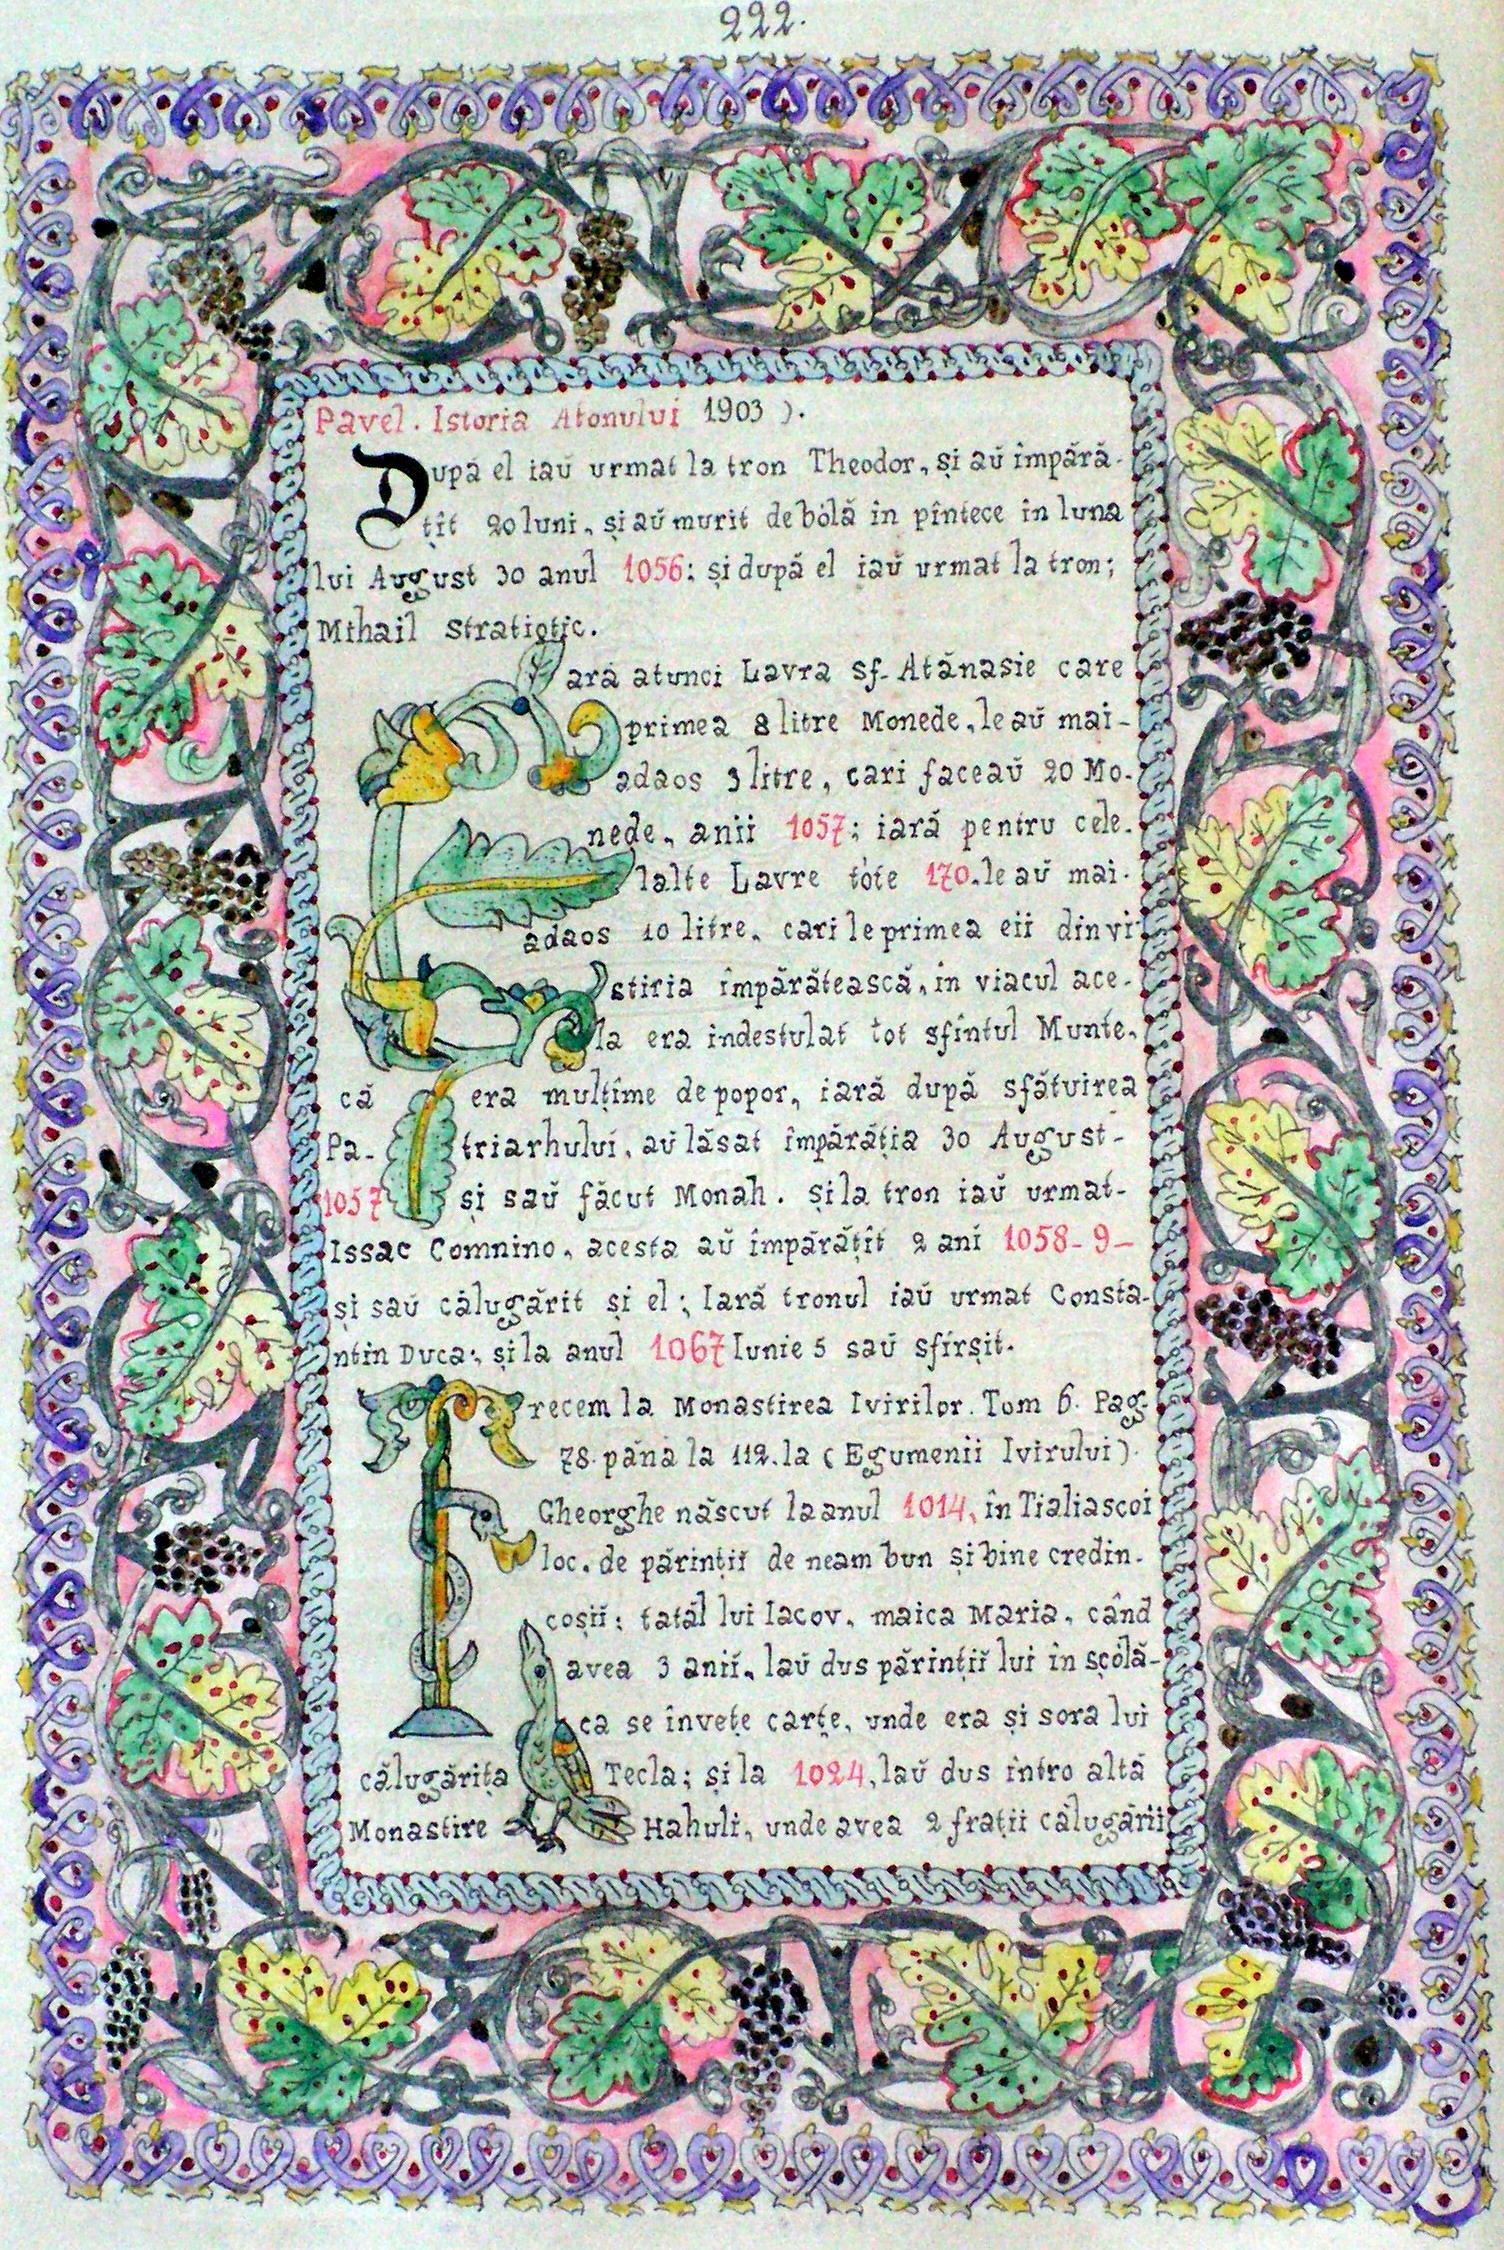 222.
Pavel. Istoria Atonului 1903 ).
După el iaŭ urmat la tron Theodor, și aŭ împără-
țît 20 luni, și aŭ murit de bólă in pîntece in luna
lui August 30 anul 1056: și după el iaŭ urmat la tron;
Mihail Stratiotic.
Iară atunci Lavra sf. Atănasie care
primea 8 litre Monede, le aŭ mai-
adaos 3 litre, cari faceaŭ 20 Mo-
nede, anii 1057; iară pentru cele-
lalte Lavre tóte 170. le aŭ mai-
adaos 10 litre, cari le primea eii din vi-
stiria împărătească, in viacul ace-
la era indestulat tot sfintul Munte,
că era mulțime de popor, iară după sfătuirea
Pa-triarhului, aŭ lăsat împărăția 30 August-
1057 și saŭ făcut Monah. și la tron iaŭ urmat-
Issac Comnino, acesta aŭ împărățit 2 ani 1058-9-
și saŭ călugărit și el; Iară tronul iaŭ urmat Consta-
ntin Duca; și la anul 1067 Iunie 5 saŭ sfirșit.
Trecem la Monastirea Ivirilor. Tom 6. Pag.
78. pănă la 112. la ( Egumenii Ivirului ).
Gheorghe născut la anul 1014, în Tialiascoi
loc. de părințiĭ de neam bun și bine credin-
coșiĭ; tatăl lui Iacov, maica Maria, când
avea 3 aniĭ, laŭ dus părințiĭ lui in scólă-
ca se învețe carțe, unde era și sora lui
călugărița Tecla; și la 1024, laŭ dus intro altă
Monastire Hahuli, unde avea 2 frații călugării